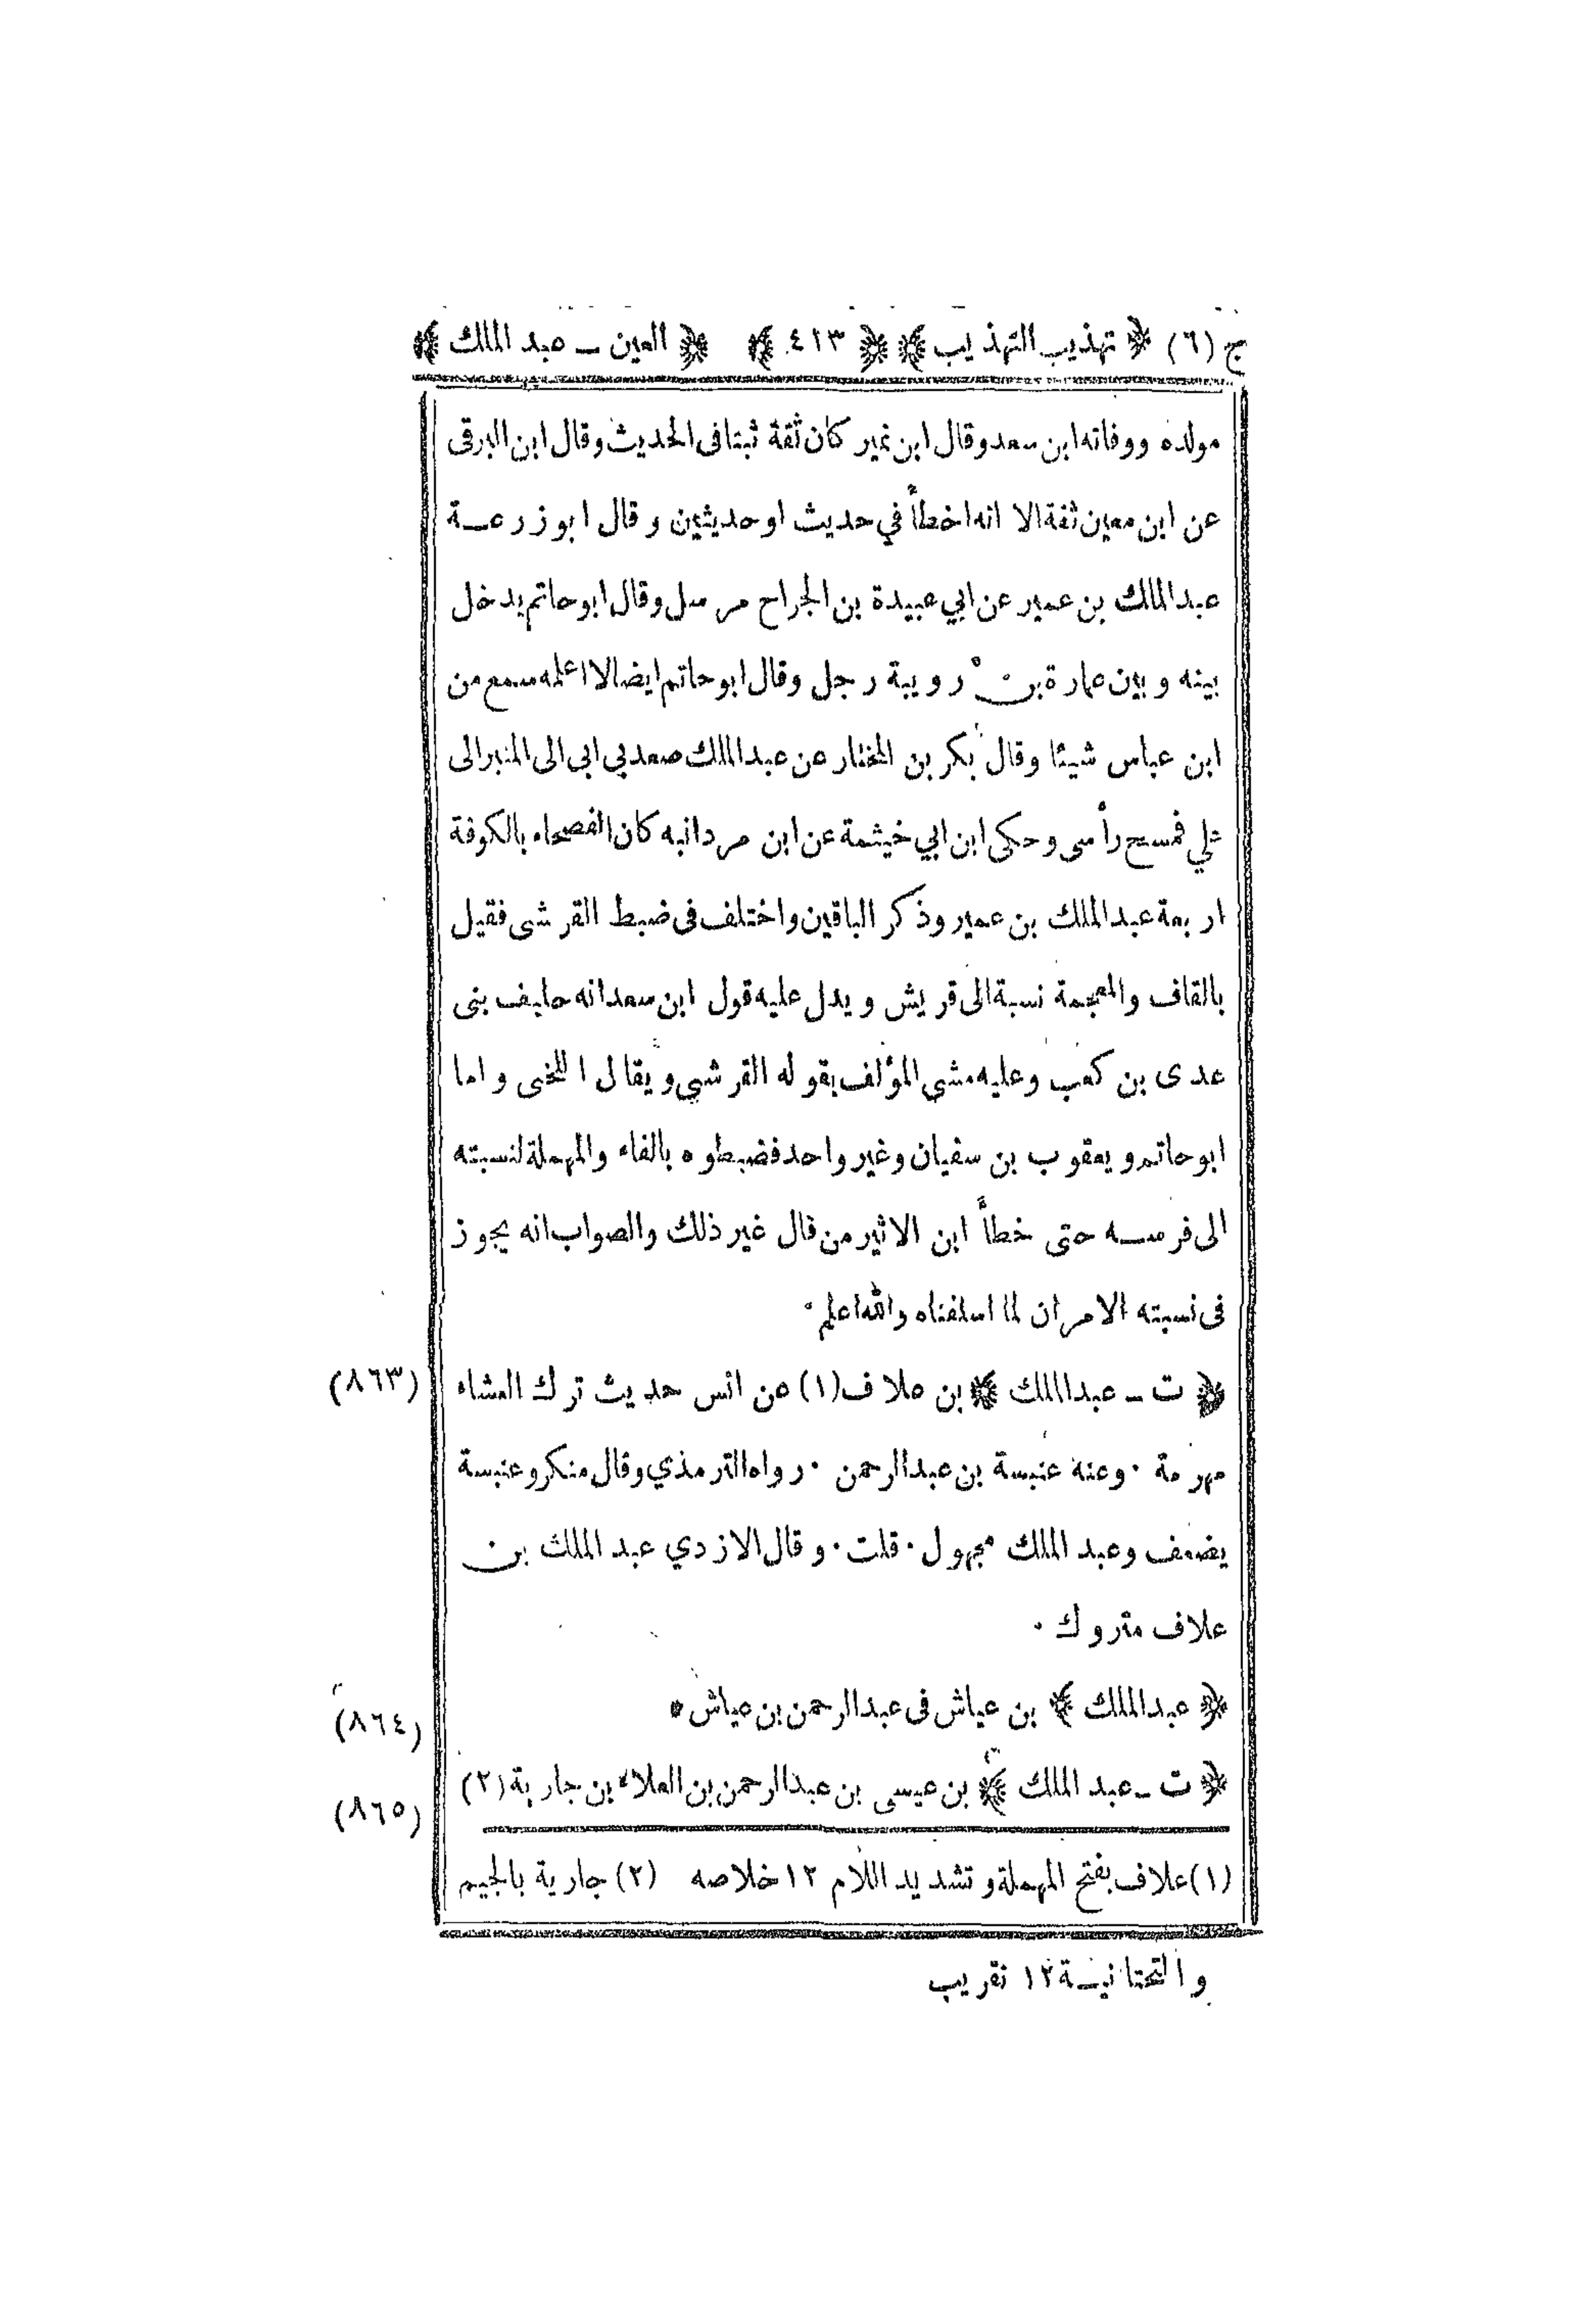 ج (٦) ﴿ تهذيب التهذيب ﴾ ﴿ ٤١٣ ﴾ ﴿ العين ـ عبد الملك ﴾
مولده ووفاته ابن سعد وقال ابن نمير كان ثقة ثبتا فى الحديث وقال ابن البرقى
عن ابن معين ثقة الا انه اخطأ في حديث او حديثين وقال ابو زرعة
عبد الملك بن عمير عن ابي عبيدة بن الجراح مرسل وقال ابو حاتم يدخل
بينه وبين عمارة بن رويبة رجل وقال ابو حاتم ايضا لا اعلمه سمع من
ابن عباس شيئا وقال بكر بن المختار عن عبد الملك صعد بي ابى الى المنبر الى
علي فمسح رأسى وحكى ابن ابي خيثمة عن ابن مردانبه كان الفصحاء بالكوفة
اربعة عبد الملك بن عمير وذكر الباقين واختلف فى ضبط القرشى فقيل
بالقاف والمعجمة نسبة الى قريش ويدل عليه قول ابن سعد انه حليف بنى
عدى بن كعب وعليه مشي المؤلف بقوله القرشي ويقال اللخمى واما
ابو حاتم ويعقوب بن سفيان وغير واحد فضبطوه بالفاء والمهملة لنسبته
الى فرسه حتى خطأ ابن الاثير من قال غير ذلك والصواب انه يجوز
فى نسبته الامران لما اسلفناه والله اعلم ٠
﴿ ت ـ عبد الملك ﴾ بن علاف (١) عن انس حديث ترك العشاء
(٨٦٣)
مهرمة ٠ وعنه عنبسة بن عبد الرحمن ٠ رواه الترمذي وقال منكر وعنبسة
يضعف وعبد الملك مجهول ٠ قلت ٠ وقال الازدي عبد الملك بن
علاف متروك ٠
﴿ عبد الملك ﴾ بن عياش فى عبد الرحمن بن عياش ٠
(٨٦٤)
﴿ ت ـ عبد الملك ﴾ بن عيسى بن عبد الرحمن بن العلاء بن جارية (٢)
(٨٦٥)
(١) علاف بفتح المهملة وتشديد اللام ١٢ خلاصه (٢) جارية بالجيم
والتحتانية ١٢ تقريب